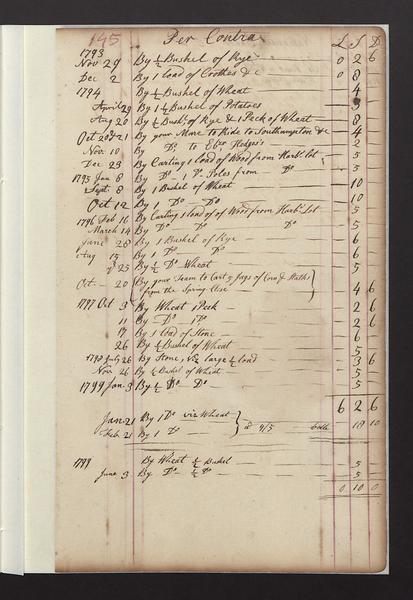 145 Per Contra £ S D
1793
Nov 29 By ½ Bushel of Rye — 0 2 6
Dec 2 By 1 load of &c — 0 8
1794 By ½ Bushel of Wheat — 4
April 29 By 1 ½ Bushel of Potatoes 3
Aug 20 By ½ Bush. of Rye & 1 Peck of Wheat — 8
Oct 20 & 21 By your Mare to Ride to Southampton &c — 4
Nov. 10 By Do to Hedges's — 2
Dec 23 By Carting 1 load of Wood from Harb. lot 5
1795 Jan 8 By Do - 1 Do Poles from Do 5
Sept. 8 By 1 Bushel of Wheat — 10
Oct 12 By 1 Do — Do — 10
1796 Feb 16 By Carting 1 load of of Wood from Harb. Lot 5
March 14 By Do Do Do 5
June 28 By 1 Bushel of Rye — 6
Aug 15 By 1 Do Do — 6
25 By ½ Do Wheat — 5
Oct. — 20 By your Team to Cart 3 Jags of Corn & Stalks
from the Spring Close 4 6
1797 Oct 3 By Wheat 1 Peck — 2 6
11 By — Do 1 Do — 2 6
17 By 1 load of Stone — 6
26 By ½ Bushel of Wheat — 5
1798 July 26 By Stone, viz large ½ load — 3 6
Nov 26 By ½ Bushel of Wheat — 5
1799 Jan 3 By ½ Do Do — 5
6 2 6
Jan 21 By 1 Do viz Wheat —
Feb. 21 By 1 Do — a 9/5 18 10
1799 By Wheat ½ Bushel — 5
June 3 By Do ½ Do — 5
0 10 0